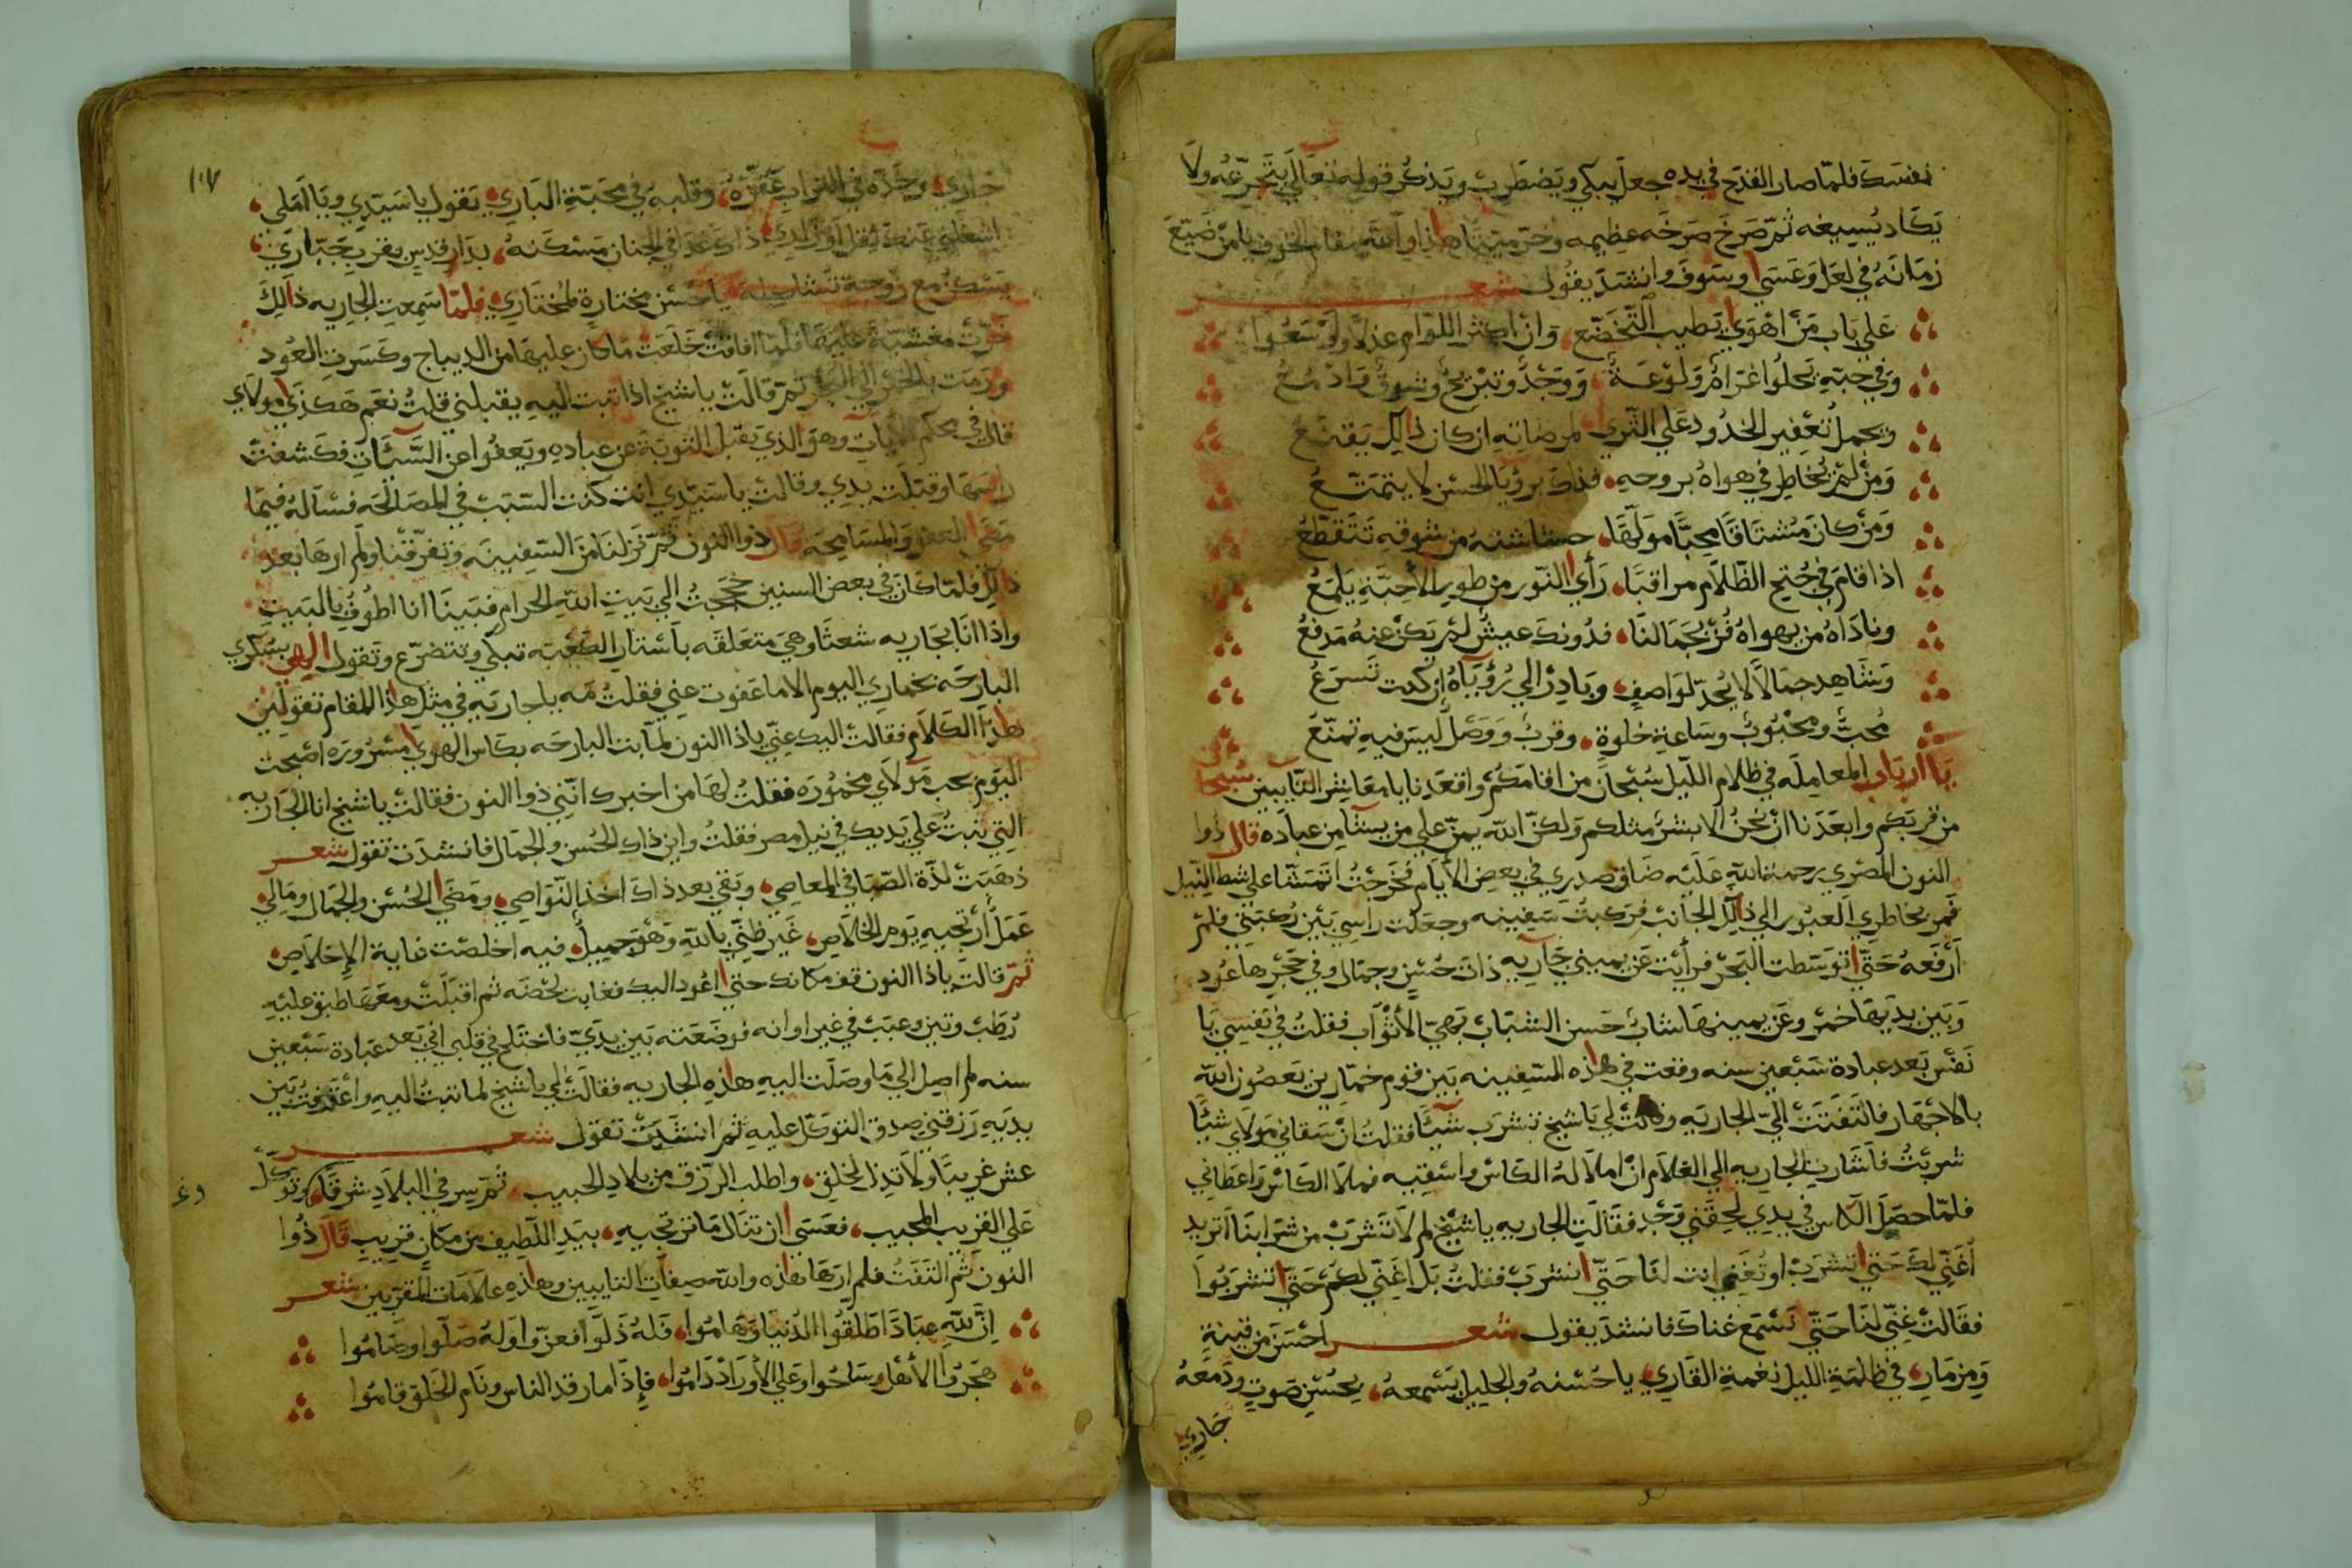 نفسك فلمّا صار القدح في يده جعل يبكي ويضطرب ويذكر قوله تعالي يتجرّعه ولا
يكاد يسيغه ثمّ صرخ صرخه عظيمه وخرّ ميتًا هذا والله مقام الخوف يا من ضيّع
زمانه في لعل وعسى وسوف وانشد يقول شعر
على باب من اهوى يطيب التخضّع، وان اكثر اللوّام عذلا ولو سعوا
وفي حبّه يحلوا غرامٌ ولوعةٌ، ووجدٌ وتبريحٌ وشوقٌ وادمعُ
ويجمل تعفير الخدود على الثرى، لمرضاته ان كان ذالك يقنعُ
ومن لم يخاطر في هواه بروحه، فذاك برؤيا الحسن لا يتمتّعُ
ومن كان مشتاقًا محبًّا مولّهًا، حشاشته من شوقه تتقطّعُ
اذا قام في جنح الظّلام مراقبًا، رأى النّور من طور الأحبّة يلمعُ
وناداه من يهواه فُز بجمالنا، فدونك عيشٌ لم يكن عنه مدفعُ
وشاهد جمالًا لا يُحدّ لواصفٍ، وبادر الي رؤياه إن كنت تسرعُ
محبٌّ ومحبوبٌ وساعة خلوةٍ، وقربٌ ووصلٌ ليس فيه تمنّعُ
يا ارباب المعامله في ظلام الليل سبحان من اقامكم واقعدنا يا معاشر التّايبين سبحان
من قربكم وابعدنا ان نحن الا بشر مثلكم ولكنّ الله يمنّ على من يشآ من عباده قال ذوا
النون المصري رحمة الله عليه ضاق صدري في بعض الأيام فخرجت اتمشّا علي شط النيل
فمر بخاطري العبور الي ذالك الجانب فركبت سفينه وجعلت راسي بين ركبتي فلم
أرفعه حتّى اتوسّطت البحر فرأيت عن يميني جاريه ذات حُسنٍ وجمال وفي حجرها عود
وبين يديها خمر وعن يمينها شابٌ حسن الشباب بهيّ الأثواب فقلت في نفسي يا
نفس بعد عبادة سبعين سنه وقعت في هذه السّفينه بين قوم خمّارين يعصون الله
بالاجهار فالتفتت اليّ الجاريه وقالت لي يا شيخ تشرب شيًّا فقلت ان سقاني مولاي شيًّا
شربت فاشارت الجاريه الي الغلام ان املا له الكاس واسقيه فملا الكاس واعطاني
فلمّا حصل الكاس في يدي لحقني وجد فقالت الجاريه يا شيخ لم لا تشرب من شرابنا اتريد
أغنّي لك حتى اتشرب او تُغني انت لنا حتّى انشرب فقلت بل اغنّي لكم حتّى اتشربوا
فقالت غنّي لنا حتّي نسمع غناك فانشد يقول شعر احسن من قينةٍ
ومزمارِ، في ظلمة الليل نغمة القاري، يا حسنه والجليل يسمعه، بحُسن صوتٍ ودمعه
جاري،
١٠٧
جاري، وخدّه في التراب عفّره، وقلبه في محبّة الباري، يقول يا سيّدي ويا املي،
اشغلني عنك ثقل اوزاري، ذاك غدا في الجنان مسكنه، بدار قدس بقرب جبّاري،
يسكن مع زوجة يا حسن مختارة لمختاري، فلمّا سمعت الجاريه ذالك
خرّت مغشيّة عليها فلمّا افاقت خلعت ما كان عليها من الديباج وكسرت العود
ورمت بالخمر الي البحر ثمّ قالت يا شيخ اذا تبت اليه يقبلني قلت نعم هكذي مولاي
قال في محكم الايات وهو الذي يقبل التوبة عن عباده ويعفوا عن السّيئات فكشفت
راسها وقبّلت يدي وقالت يا سيّدي انت كنت السّبب في المصالحه فسأله فيما
مضى العفو والمسامحه قال ذوا النون ثمّ نزلنا من السّفينه وتفرّقنا ولم ارها بعد
ذالك فلمّا كان في بعض السنين حججت الي بيت الله الحرام فبينا انا اطوف بالبيت
واذا انا بجاريه شعثا وهي متعلقه بأستار الكعبه تبكي وتتضرّع وتقول الهي بسكري
البارحه بخماري اليوم الا ما عفوت عني فقلت مه يا جاريه في مثل هذا المقام تقولين
هذا الكلام فقالت اليك عنّي يا ذا النون لمّا بت البارحه بكاس الهوى مسروره اصبحت
اليوم بحب مولاي مخمُوره فقلت لها من اخبرك انّني ذوا النون فقالت يا شيخ انا الجاريه
التي تبتُ علي يديك في نيل مصر فقلت واين ذاك الحُسن والجمال فانشدت تقول شعر
ذهبت لذّة الصّبا في المعاصي، وبقي بعد ذاك اخذ النّواصي، ومضى الحُسن والجمال ومالي
عملٌ أرتجيه يوم الخلاص، غير ظنّي بالله وهو جميلٌ، فيه اخلصت غاية الإخلاص،
ثمّ قالت يا ذا النون قف مكانك حتي اعود اليك فغابت لحضه ثم اقبلت ومعها طبق عليه
رُطَب وتين وعنب في غير اوانه فوضعته بين يديّ فاختلج في قلبي اني بعد عبادة سبعين
سنه لم اصل الي ما وصلت اليه هذه الجاريه فقالت لي يا شيخ لما تبت اليه واعترفت بين
يديه رزقني صدق التوكّل عليه ثم انشدت تقول شعر
عش غريبًا ولا تذل لخلقٍ، واطلب الرّزق من بلاد الحبيب، ثمّ سر في البلاد شرقًا وغربًا وتوكّل
على القريب المجيب، فعسى ان تنال ما ترتجيه، بيد اللّطيف من مكانٍ قريب قال ذوا
النون ثم التفتُّ فلم ارها هذه والله صفات التايبين وهذه علامات المقرّبين شعر
إنّ لله عبادًا طلّقوا الدّنيا وهاموا، فله ذلّوا فعزّوا وله صلّوا وصاموا
هجروا الأهل وساحوا وعلى الأوراد داموا، فإذا ما رقد الناس ونام الخلق قاموا